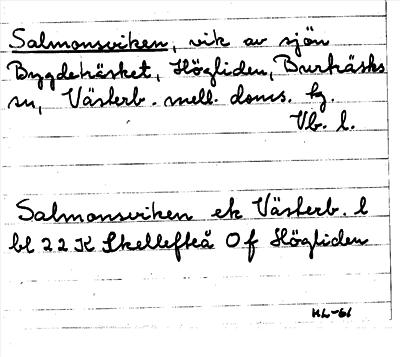 Salmonsviken, vik av sjön
Bygdeträsket, Högliden, Burträsks
sn, Västerb. mell. doms. tg.
Vb. l.
Salmonsviken ek Västerb. l
bl 22 K Skellefteå 0 f Högliden
HL-61